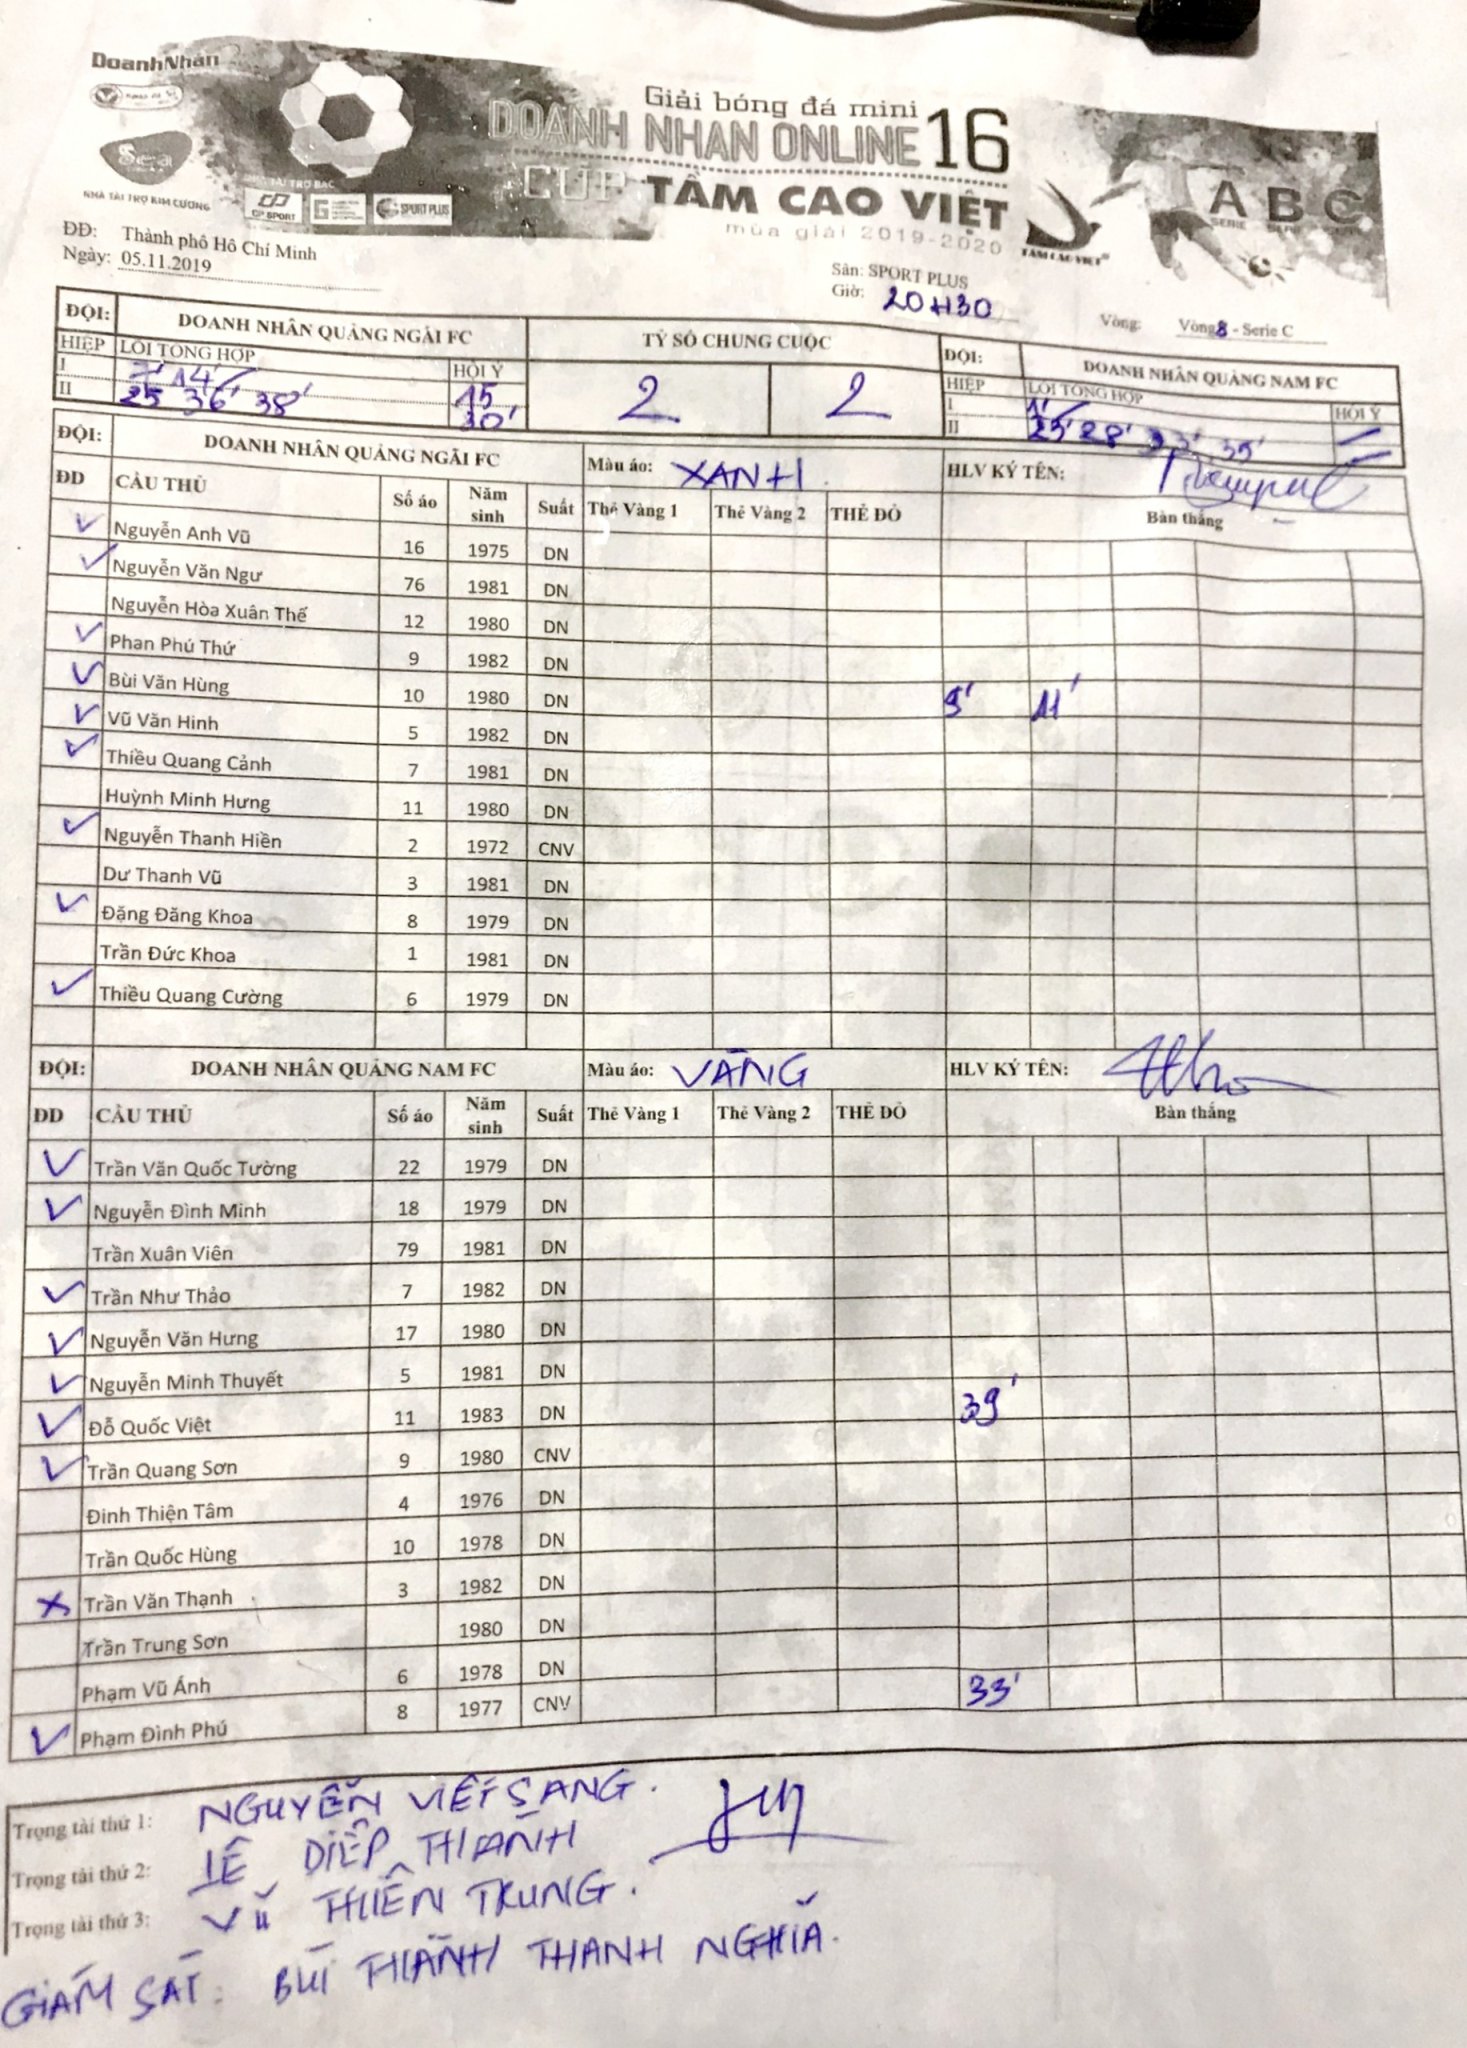 DoanhNhân
Giải bóng đá mini
DOANH NHÂN ONLINE 16
CÚP TẦM CAO VIỆT
mùa giải 2019-2020
NHÀ TÀI TRỢ KIM CƯƠNG
CP SPORT
SPORT PLUS
TẦM CAO VIỆT
A B C
SERIE
ĐĐ: Thành phố Hồ Chí Minh
Ngày: 05.11.2019
Sân: SPORT PLUS
Giờ: 20H30
Vòng: Vòng 8 - Serie C
ĐỘI: DOANH NHÂN QUẢNG NGÃI FC TỶ SỐ CHUNG CUỘC ĐỘI: DOANH NHÂN QUẢNG NAM FC
HIỆP LỖI TỔNG HỢP HỘI Ý 2 2 HIỆP LỖI TỔNG HỢP HỘI Ý
I 7' 14' 15 I 1'
II 25 36' 38' 30' II 25' 28' 33' 35'
ĐỘI: DOANH NHÂN QUẢNG NGÃI FC Màu áo: XANH HLV KÝ TÊN:
ĐD CẦU THỦ Số áo Năm sinh Suất Thẻ Vàng 1 Thẻ Vàng 2 THẺ ĐỎ Bàn thắng
✓ Nguyễn Anh Vũ 16 1975 DN
✓ Nguyễn Văn Ngư 76 1981 DN
Nguyễn Hòa Xuân Thế 12 1980 DN
✓ Phan Phú Thứ 9 1982 DN
✓ Bùi Văn Hùng 10 1980 DN 9' 11'
✓ Vũ Văn Hinh 5 1982 DN
✓ Thiều Quang Cảnh 7 1981 DN
Huỳnh Minh Hưng 11 1980 DN
✓ Nguyễn Thanh Hiền 2 1972 CNV
Dư Thanh Vũ 3 1981 DN
✓ Đặng Đăng Khoa 8 1979 DN
Trần Đức Khoa 1 1981 DN
✓ Thiều Quang Cường 6 1979 DN
ĐỘI: DOANH NHÂN QUẢNG NAM FC Màu áo: VÀNG HLV KÝ TÊN:
ĐD CẦU THỦ Số áo Năm sinh Suất Thẻ Vàng 1 Thẻ Vàng 2 THẺ ĐỎ Bàn thắng
✓ Trần Văn Quốc Tường 22 1979 DN
✓ Nguyễn Đình Minh 18 1979 DN
Trần Xuân Viên 79 1981 DN
✓ Trần Như Thảo 7 1982 DN
✓ Nguyễn Văn Hưng 17 1980 DN
✓ Nguyễn Minh Thuyết 5 1981 DN
✓ Đỗ Quốc Việt 11 1983 DN 39'
✓ Trần Quang Sơn 9 1980 CNV
Đinh Thiện Tâm 4 1976 DN
Trần Quốc Hùng 10 1978 DN
x Trần Văn Thạnh 3 1982 DN
Trần Trung Sơn 1980 DN
Phạm Vũ Ánh 6 1978 DN
✓ Phạm Đình Phú 8 1977 CNV 33'
Trọng tài thứ 1: NGUYỄN VIẾT SANG.
Trọng tài thứ 2: LÊ DIỆP THÀNH
Trọng tài thứ 3: VŨ THIÊN TRUNG.
GIÁM SÁT: BÙI THÀNH THANH NGHĨA.